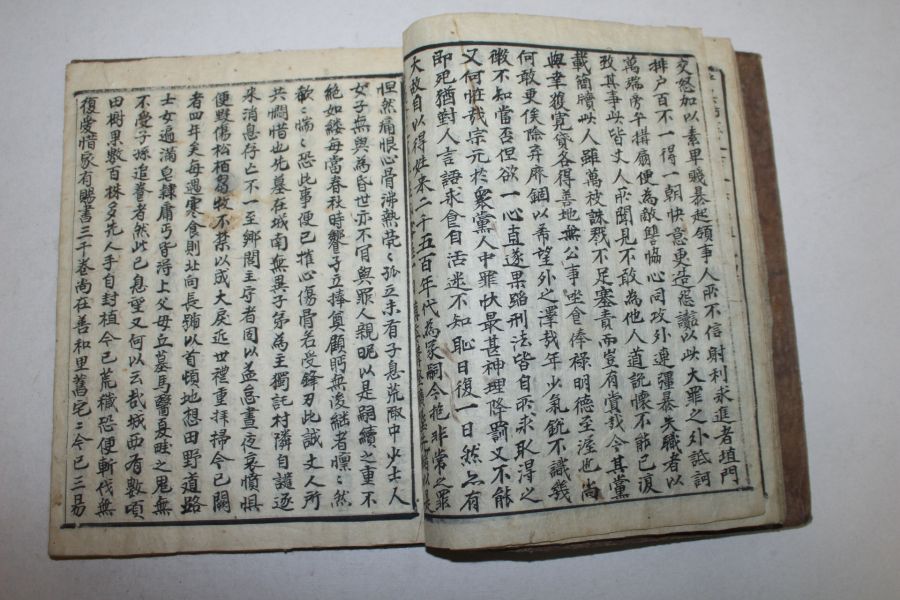 交怒加以素卑賤暴起領事人所不信射利求進者塡門
排戶百不一得一朝快意更造怨讟以此大罪之外詆訶
萬端旁午搆扇便為敵讐恊心同攻外連彊暴失職者以
致其事此皆丈人所聞見不敢為他人道說懷不能已復
載簡牘此人雖萬被誅戮不足塞責而豈有賞哉今其黨
與幸獲寬貸各得善地無公事坐食俸祿明德至渥也尚
何敢更俟除弃廢錮以希望外之澤哉年少氣銳不識幾
微不知當否但欲一心直遂果陷刑法皆自所求取得之
又何恠哉宗元於衆黨人中罪狀最甚神理降罰又不能
即死猶對人言語求食自活迷不知恥日復一日然亦有
大故自以得姓来二千五百年代為冢嗣今抱非常之罪
怛然痛恨心骨沸熱煢〻孤立未有子息荒陬中少士人
女子無與為昏世亦不肎與罪人親昵以是嗣續之重不
絕如縷每當春秋時饗孑立捧奠顧眄無後継者懍〻然
欷〻惴〻恐此事便已摧心傷骨若受鋒刃此誠丈人所
共憫惜也先墓在城南無異子弟為主獨託村隣自譴逐
来消息存亡不一至鄉閭主守者固以益怠晝夜哀憤惧
便毀傷松栢芻牧不禁以成大戾近世禮重拜掃今已闕
者四年矣每遇寒食則北向長號以首頓地想田野道路
士女遍滿皂隷庸丐皆得上父母丘墓馬醫夏畦之鬼無
不受子孫追養者然此已息望又何以云哉城西有數頃
田樹果數百株多先人手自封植今已荒穢恐便斬伐無
復愛惜家有賜書三千卷尚在善和里舊宅〻今已三易